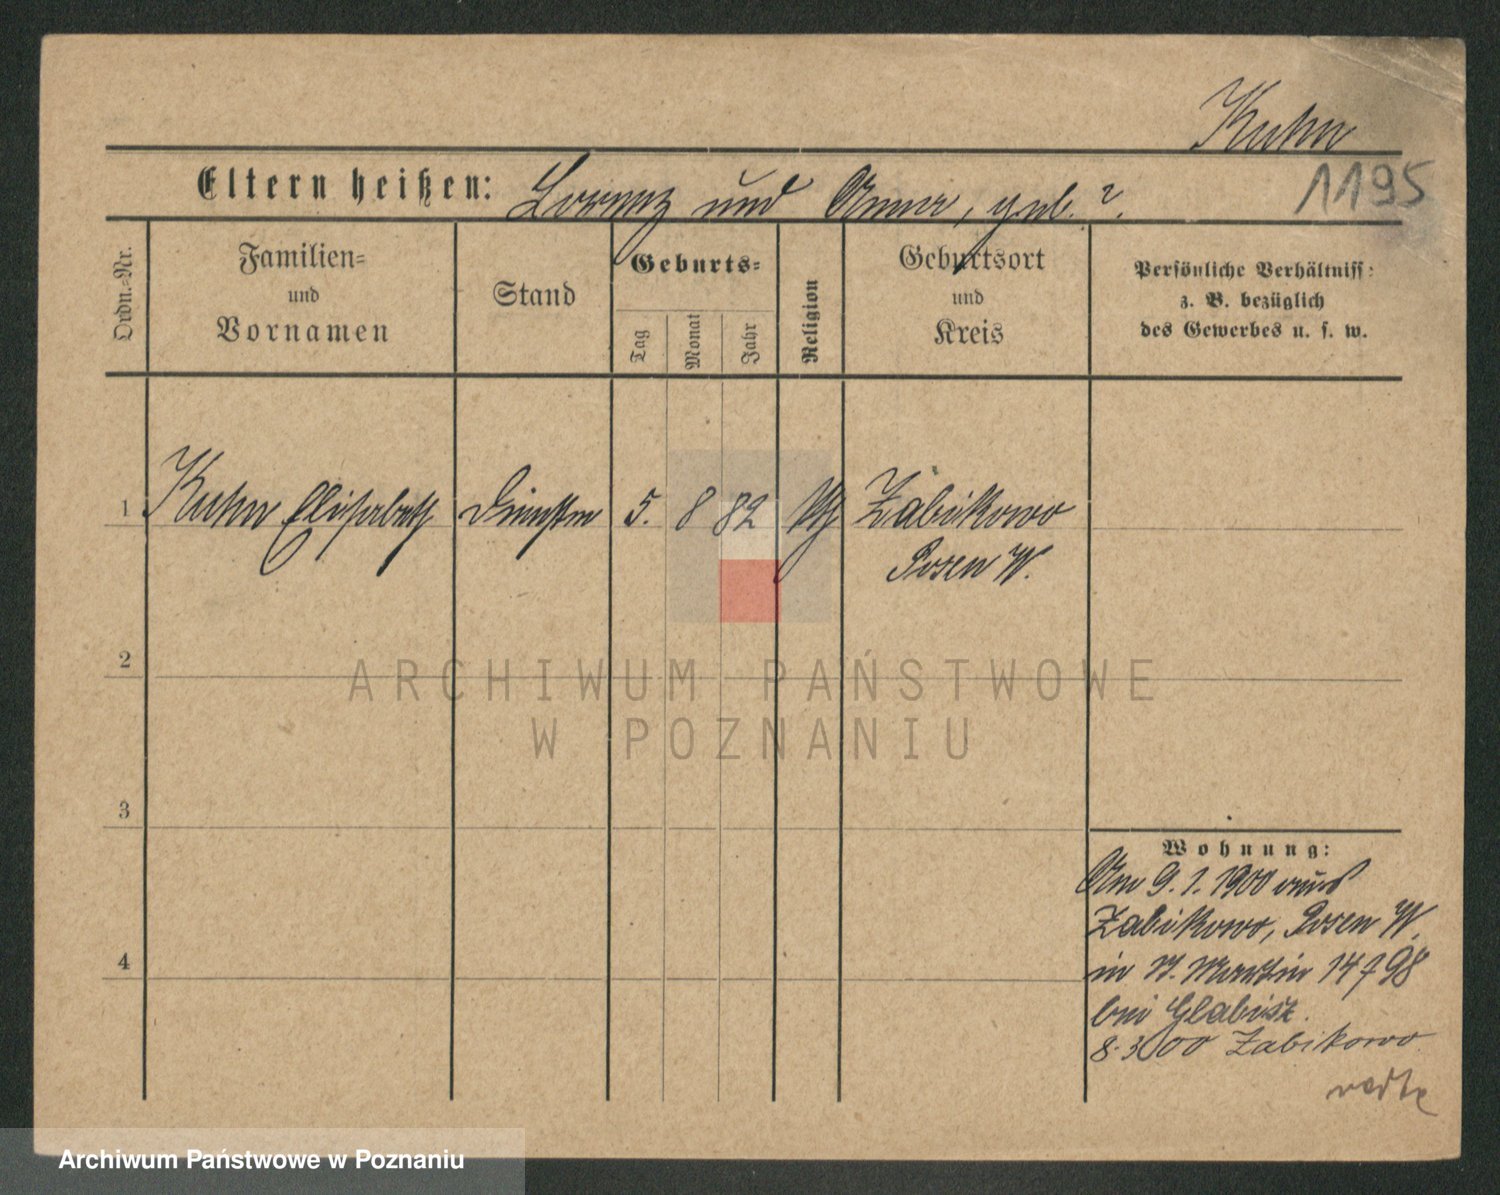 Kuhn
1195
Eltern heißen: Lorenz und Anna, geb. ?.
Ordn.=Nr.
Familien=
und
Vornamen
Stand
Geburts=
Tag
Monat
Jahr
Religion
Geburtsort
und
Kreis
Persönliche Verhältniss:
z. B. bezüglich
des Gewerbes u. s. w.
1 Kuhn Elisabeth 5. 8 82 kth Zabikowo
Posen W.
2
3
4
Wohnung:
Am 9. 1. 1900 aus
Zabikowo, Posen W.
in St. Martin 14
bei Glabisz.
8. 3 00 Zabikowo
ARCHIWUM PAŃSTWOWE
W POZNANIU
Archiwum Państwowe w Poznaniu